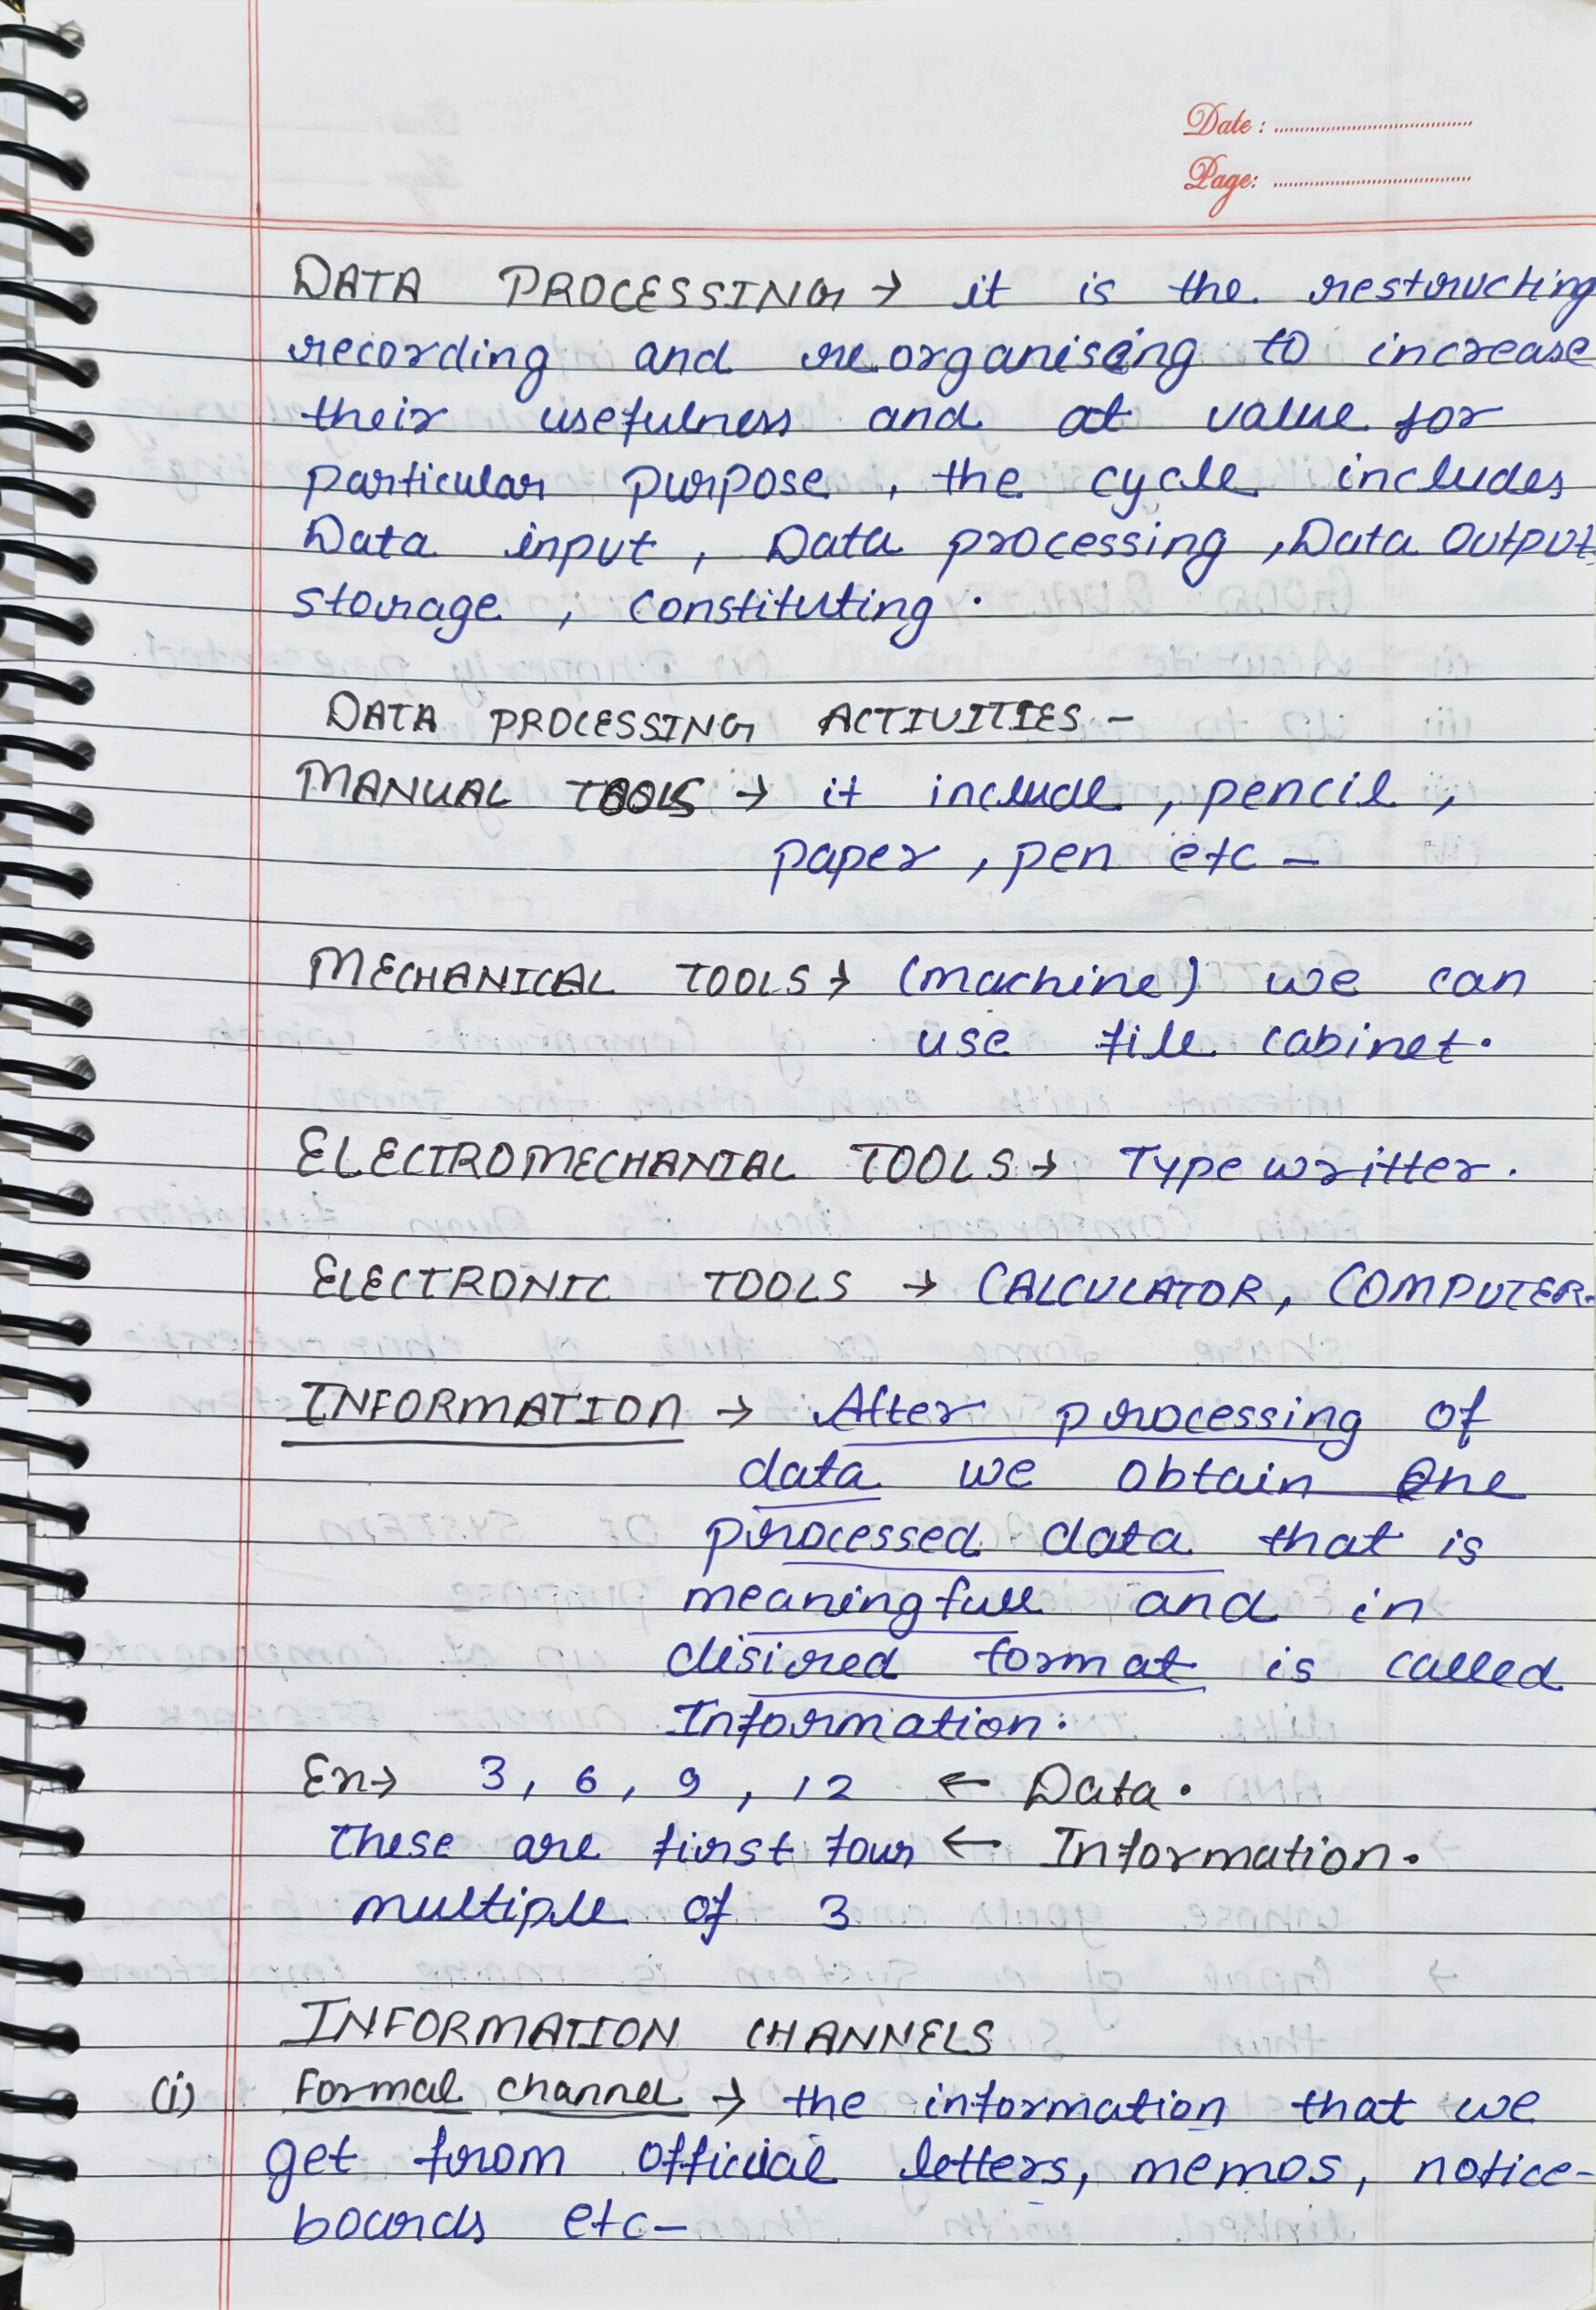 Date :
Page:
DATA PROCESSING → it is the restructing
recording and reorganising to increase
their usefulness and at value for
particular purpose, the cycle includes
Data input, Data processing, Data output
storage, constituting.
DATA PROCESSING ACTIVITIES -
MANUAL TOOLS → it include, pencil,
paper, pen etc -
MECHANICAL TOOLS → (machine) we can
use file cabinet.
ELECTROMECHANIAL TOOLS → Type writter.
ELECTRONIC TOOLS → CALCULATOR, COMPUTER.
INFORMATION → After processing of
data we obtain one
processed data that is
meaningfull and in
disired format is called
Information.
Ex → 3, 6, 9, 12 ← Data.
these are first four ← Information.
multiple of 3
INFORMATION CHANNELS
(i) Formal channel → the information that we
get from official letters, memos, notice-
boards etc-